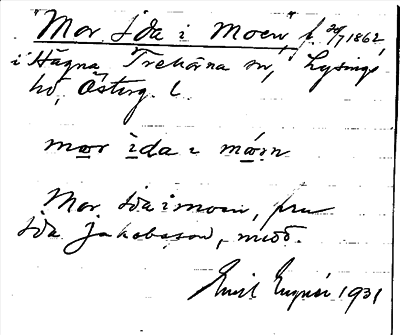 "Mor Ida i Moen" f. 20/7 1862
i Hägna Trehörna sn, Lysings
hd, Österg. l.
mor ida i mo̤in
Mor Ida i moen, fru
Ida Jakobsson, medd.
Emil 1931